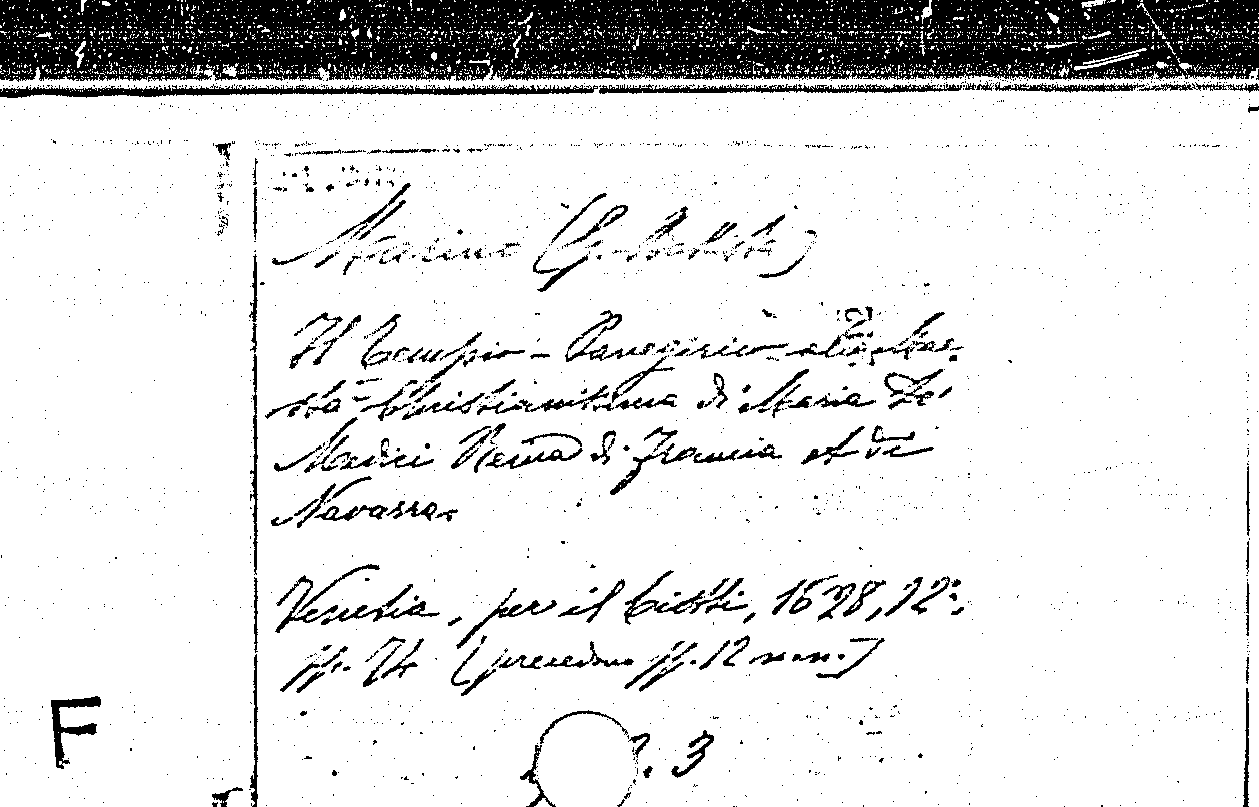 Marino (G. Battista)
Il Tempio - Panegirico alla Mae
stà Christianissima di Maria De'
Medici Reina di Francia et di
Navarra.
Venetia, per il Ciotti, 1628, 12°.
pp. 74 (precedono pp. 12 n. n.)
3
F